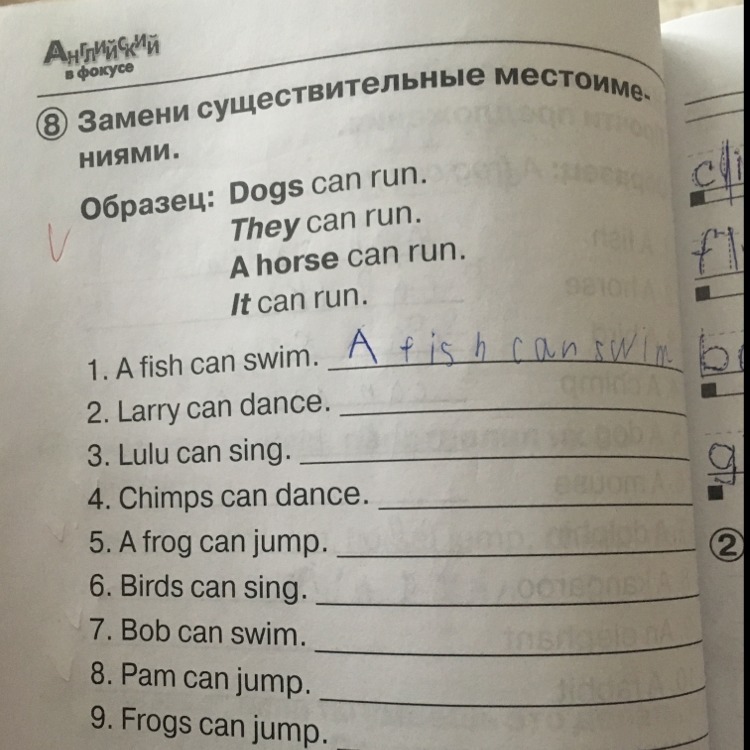 Английский
в фокусе
8 Замени существительные местоиме-
ниями.
Образец: Dogs can run.
They can run.
A horse can run.
It can run.
1. A fish can swim. A fish can swim
2. Larry can dance.
3. Lulu can sing.
4. Chimps can dance.
5. A frog can jump.
6. Birds can sing.
7. Bob can swim.
8. Pam can jump.
9. Frogs can jump.
2